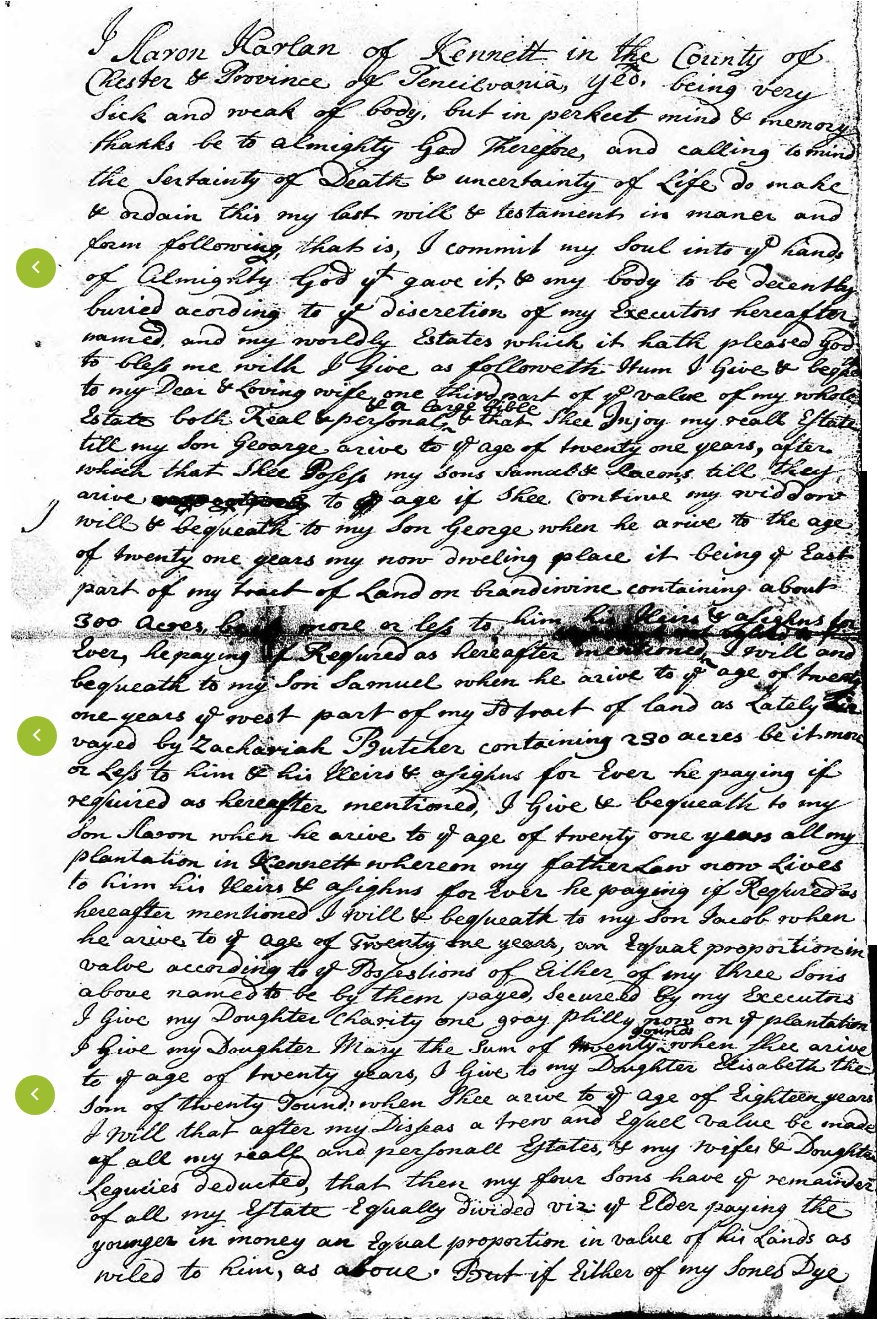 I Aaron Harlan of Kennett in the County of
Chester & Province of Pencilvania, yeo. being very
Sick and weak of body, but in perfect mind & memory
thanks be to almighty God Therefore, and calling to mind
the Sertainty of Death & uncertainty of Life do make
& ordain this my last will & testament in maner and
form following, that is, I commit my Soul into ye hands
of Almighty God yt gave it & my body to be decently
buried acording to ye discretion of my Executors hereafter
named, and my worldly Estates which it hath pleased God
to bless me with I Give as followeth Itum I Give &
to my Dear & Loving wife, one third part of ye value of my whole
& a large Bible
Estate both Real & personal, & that Shee Injoy my reall Estate
till my Son Geoarge arive to ye age of twenty one years, after
which that Shee Posess my sons Samuel & Aarons till they
arive to ye age if Shee continue my widdow
I
will & bequeath to my Son George when he arive to the age
of twenty one years my now dweling place it being ye East
part of my tract of Land on brandiwine containing about
300 Acres, more or less to him his Heirs & asighns for
Ever, he paying if Requred as hereafter mentioned, I will and
bequeath to my Son Samuel when he arive to ye age of twenty
one years ye west part of my sd tract of land as Lately
vayed by Zachariah Butcher containing 230 acres be it more
or Less to him & his Heirs & asighns for Ever he paying if
required as hereafter mentioned, I Give & bequeath to my
Son Aaron when he arive to ye age of twenty one years all my
plantation in Kennett wherein my father Law now Lives
to him his Heirs & asighns for Ever he paying if Requred as
hereafter mentioned I will & bequeath to my Son Jacob when
he arive to ye age of Twenty one years, an Equal proportion in
value according to ye Possestions of Either of my three Sons
above named to be by them payed, Secureed by my Executors
I Give my Doughter Charity one gray philly now on ye plantation
pounds
I Give my Doughter Mary the Sum of twenty when Shee arive
to ye age of twenty years, I Give to my Doughter Elisabeth the
Som of twenty Pound when Shee arive to ye age of Eighteen years
I Will that after my Diseas a trew and Equel value be made
of all my reall and personall Estates, & my wifes & Doughters
Legucies deducted, that then my four Sons have ye remainder
of all my Estate Equally divided viz: ye Elder paying the
younger in money an Equal proportion in value of his Lands as
wiled to him, as above. But if Either of my Sones Dye